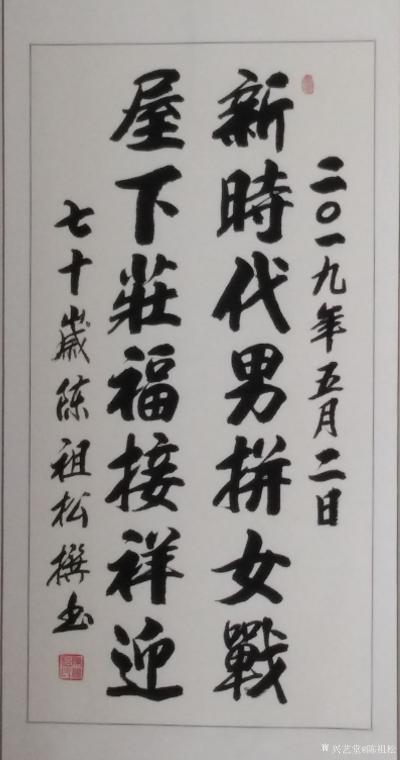 二〇一九年五月二日
新時代男拼女戰
屋下莊福接祥迎
七十歲陳祖松撰书
兴艺堂@陈祖松